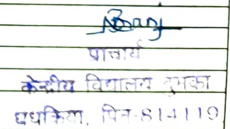 प्राचार्य
केन्द्रीय विद्यालय दुमका
दुधकिया, पिन-814119